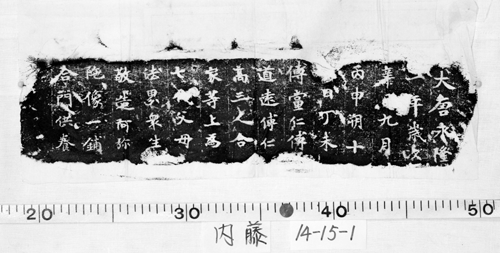 大唐永隆
二年歲次
九月
丙申朔十
日丁未
傅黨仁傅
道遠傅仁
高三人合
家等上爲
七代父母
法界衆生
敬造阿弥
陁像一鋪
合門供養
20 30 40 50
内藤 14-15-1